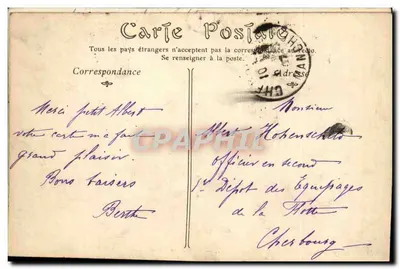 Carte Postale
Tous les pays étrangers n'acceptent pas la correspondance au recto.
Se renseigner à la poste.
Correspondance
Adresse
MANCHE
Merci petit Albert
votre carte m'a fait
grand plaisir.
Bons baisers
Berthe
Monsieur
Albert
officier en second
1er Dépôt des Equipages
de la Flotte
Cherbourg